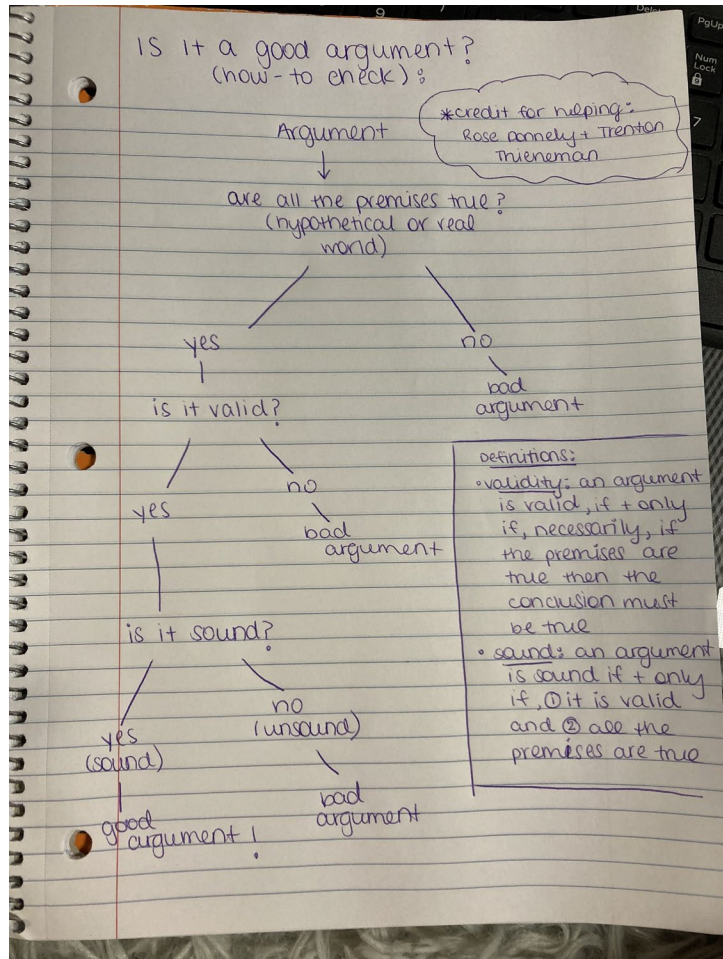 Is it a good argument?
(how-to check):
*credit for helping:
Rose Donnely + Trenton
Thieneman
Argument
are all the premises true?
(hypothetical or real
world)
yes
no
bad
argument
is it valid?
yes
no
bad
argument
is it sound?
yes
(sound)
no
(unsound)
good
argument!
bad
argument
Definitions:
•validity: an argument
is valid, if + only
if, necessarily, if
the premises are
true then the
conclusion must
be true
• sound: an argument
is sound if + only
if, ① it is valid
and ② all the
premises are true
9
7
Delete
PgUp
Num
Lock
7